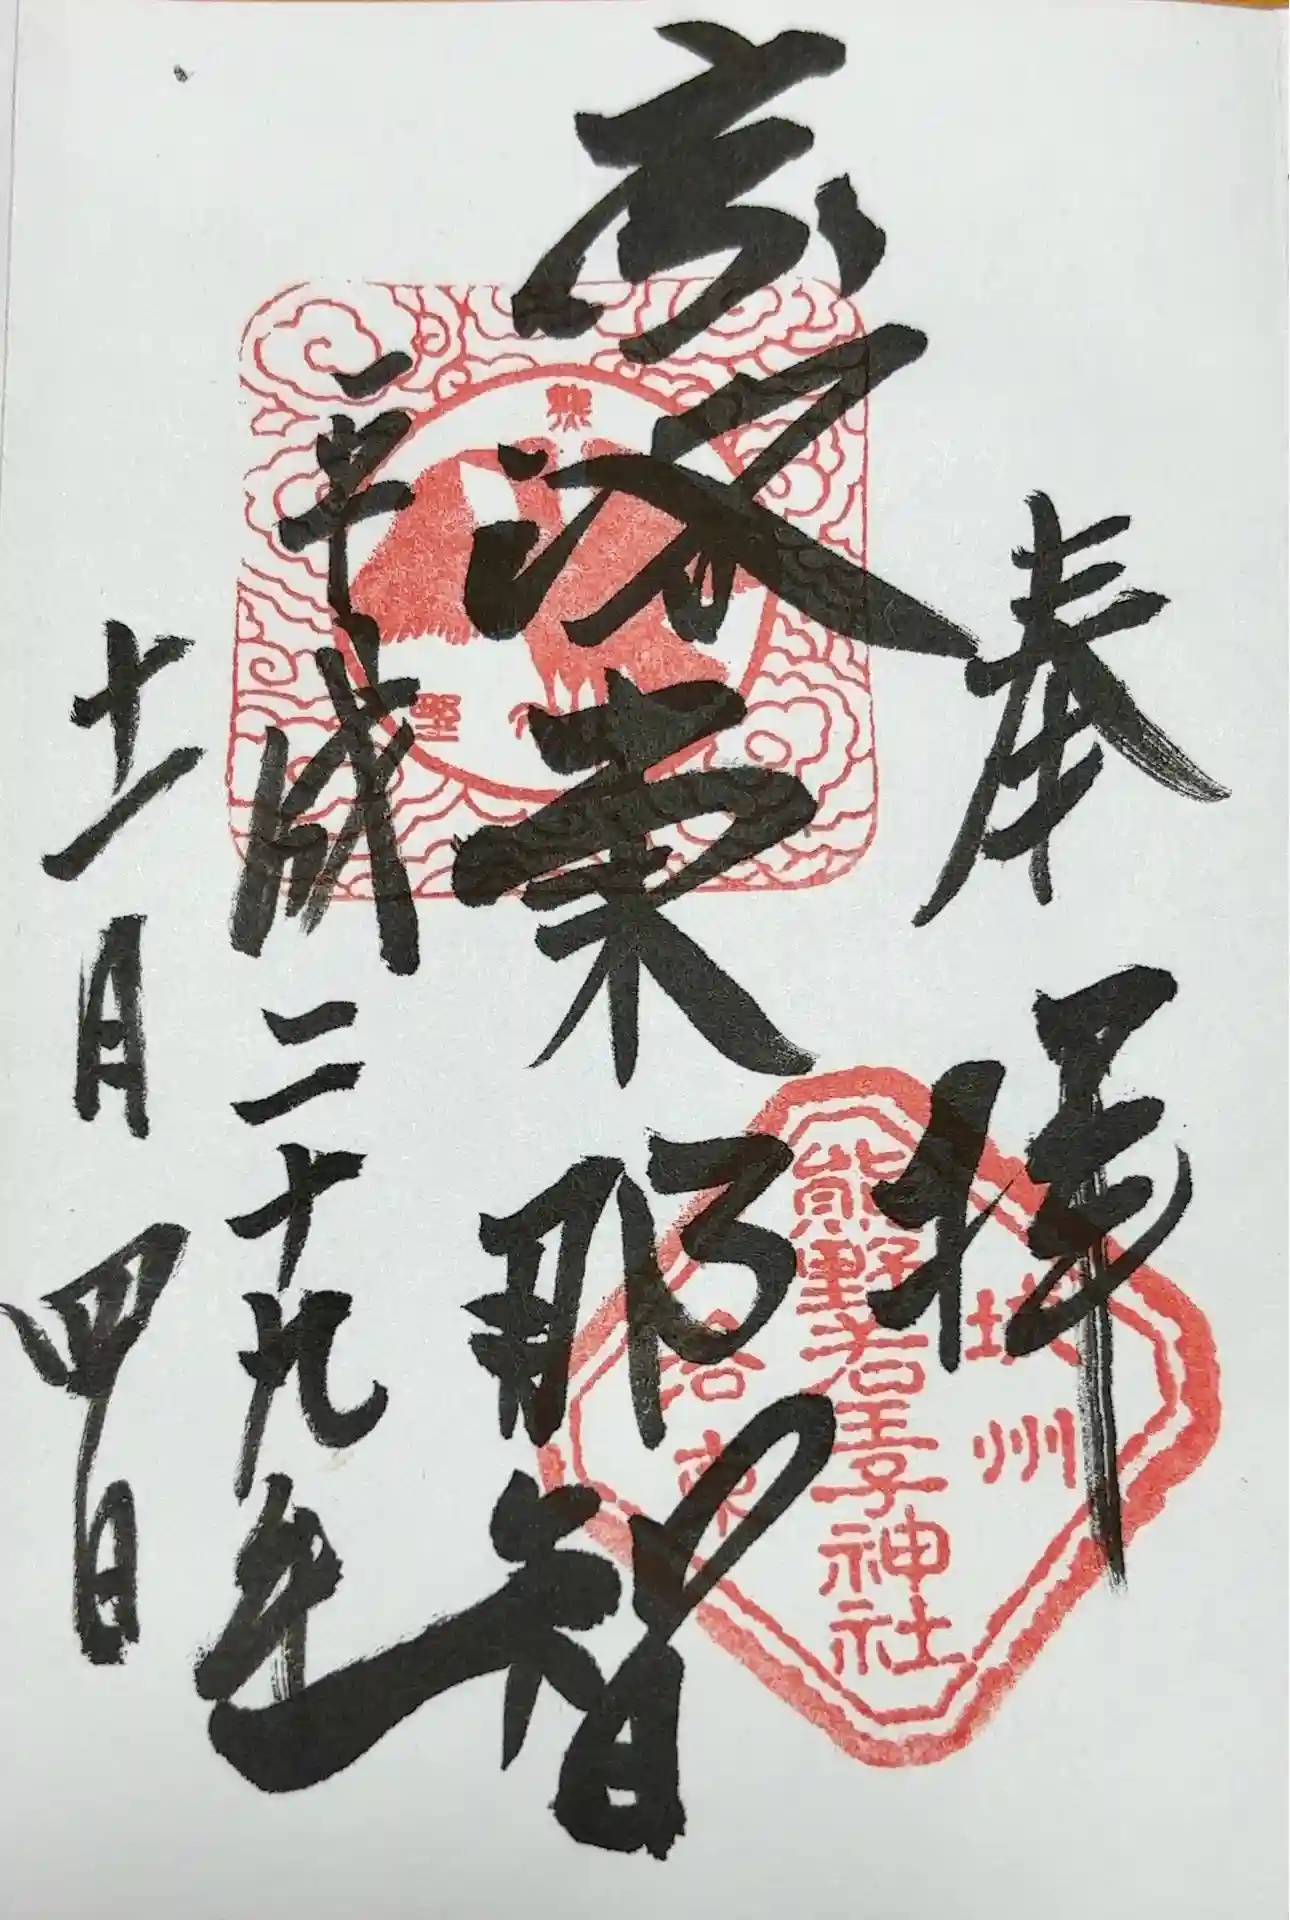 奉拝
京洛東那智
平成二十九年
十一月四日
熊野
城州
熊野若王子神社
洛東